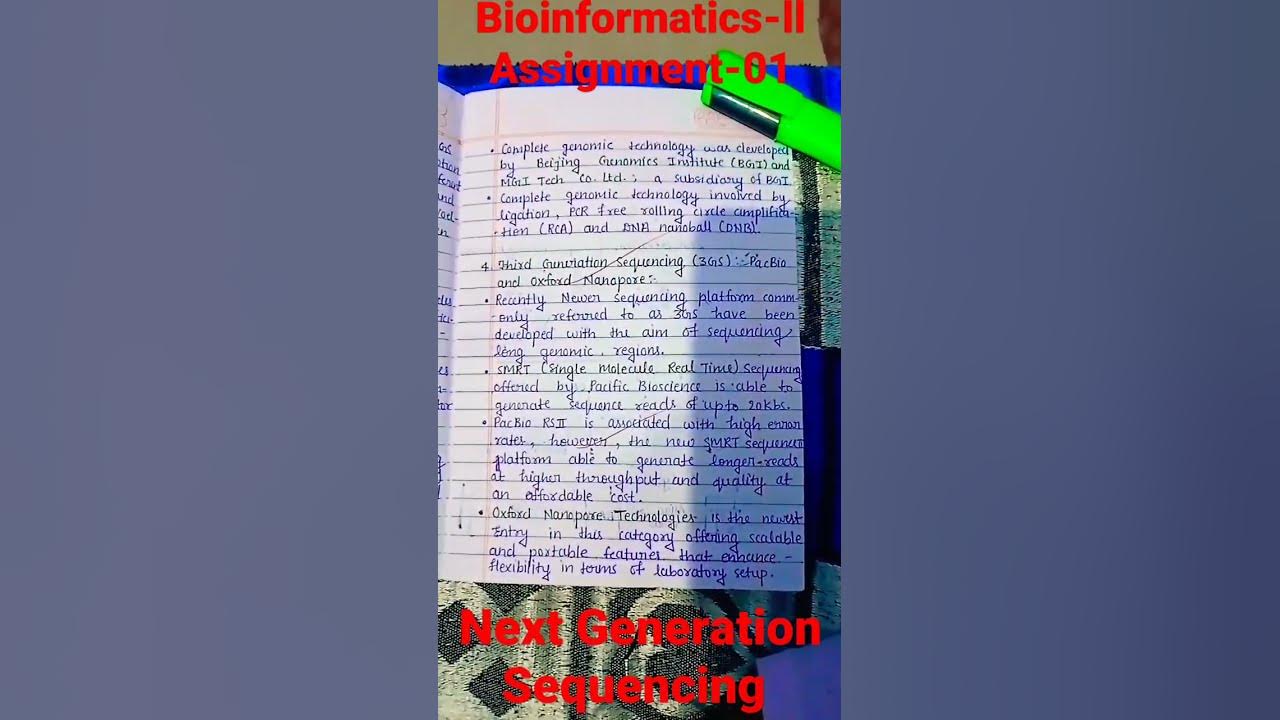 Bioinformatics-II
Assignment-01
• Complete genomic technology was developed
by Beijing Genomics Institute (BGI) and
MGI Tech Co. Ltd.; a subsidiary of BGI
• Complete genomic technology involved by
ligation, PCR free rolling circle amplifica-
-tion (RCA) and DNA nanoball (DNB).
4. Third Generation Sequencing (3GS):- PacBio
and Oxford Nanopore:-
• Recently Newer sequencing platform comm-
-only referred to as 3GS have been
developed with the aim of sequencing
long genomic regions.
• SMRT (Single Molecule Real Time) Sequencing
offered by Pacific Bioscience is able to
generate sequence reads of upto 20kbs.
• PacBio RSII is associated with high error
rates, however, the new SMRT sequencen
platform able to generate longer-reads
at higher throughput and quality at
an affordable cost.
• Oxford Nanopore Technologies is the newest
Entry in this category offering scalable
and portable features that enhance -
flexibility in terms of laboratory setup.
Next Generation
Sequencing